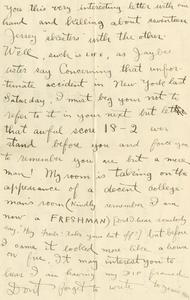 you this very interesting letter with one
hand and killing about seventeen
Jersey 'skeeters with the other.
Well, such is LIFE, as Jaybee
says Concerning that unfor-
tunate accident in New York last
Saturday, I must beg your not to
refer to it in your next but let
that awful score 18-2 ever
stand before you and force you
to remember you are but a mere
man! My room is taking on the
appearance of a decent college
man's room (Kindly remember I am
now a FRESHMAN)
say: "My Fresh: take your hat off") but before
I came it looked more like a house
on fire. It may interest you to
hear I am having my framed
Don't forget to write